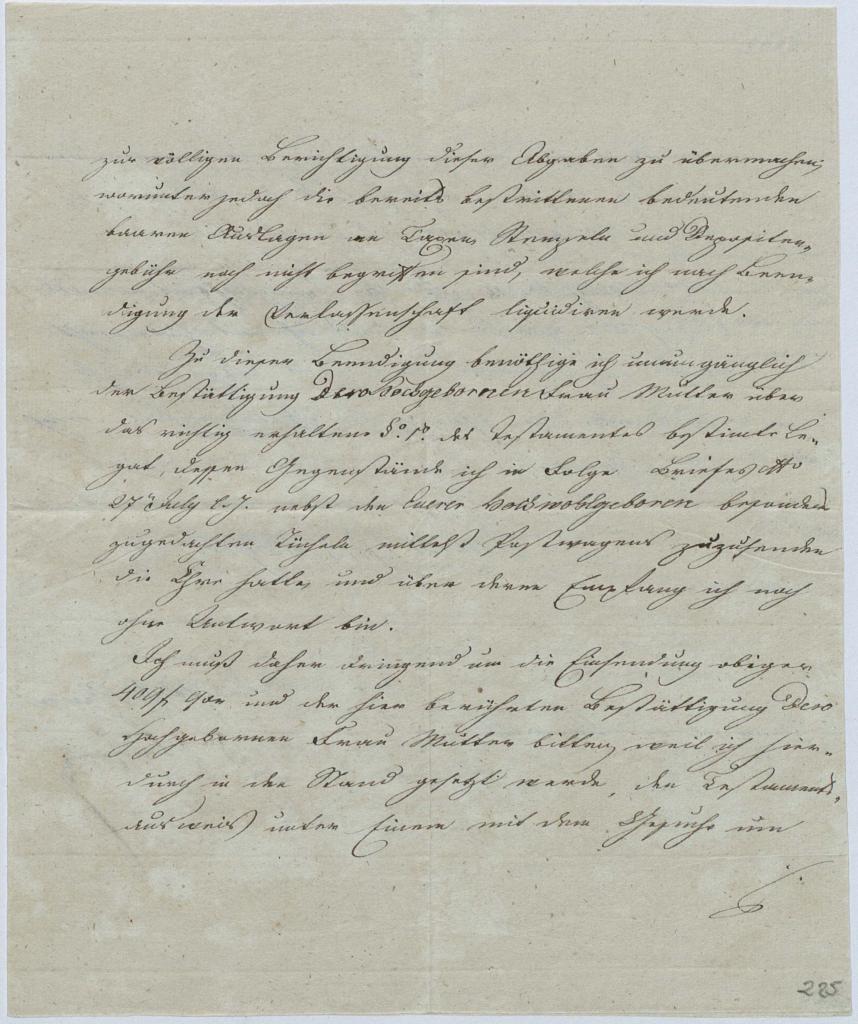 zur völligen Berichtigung dieser Abgaben zu übermachen;
worunter jedoch die bereits bestrittenen bedeutenden
baaren Auslagen an Taxen, Stempeln und Depositen-
gebühr noch nicht begriffen sind, welche ich nach Been-
digung der Verlassenschaft liquidiren werde.
Zu dieser Beendigung benöthige ich unumgänglich
der Bestättigung Dero Hochgebornen Frau Mutter über
das richtig erhaltene §o. 1o. des Testamentes bestimte Le-
gat, dessen Gegenstände ich in Folge Briefes dtto
27n July l. J. nebst den Euerer Hochwohlgeboren besonders
zugedachten Tücheln mittelst Postwagens zuzusenden
die Ehre hatte, und über deren Empfang ich noch
ohne Antwort bin.
Ich muß daher dringend um die Einsendung obiger
409f und der hier berührten Bestättigung Dero
Hochgebornen Frau Mutter bitten, weil ich hier-
durch in den Stand gesetzt werde, den Testaments-
ausweis unter Einem mit dem Gesuche um
225